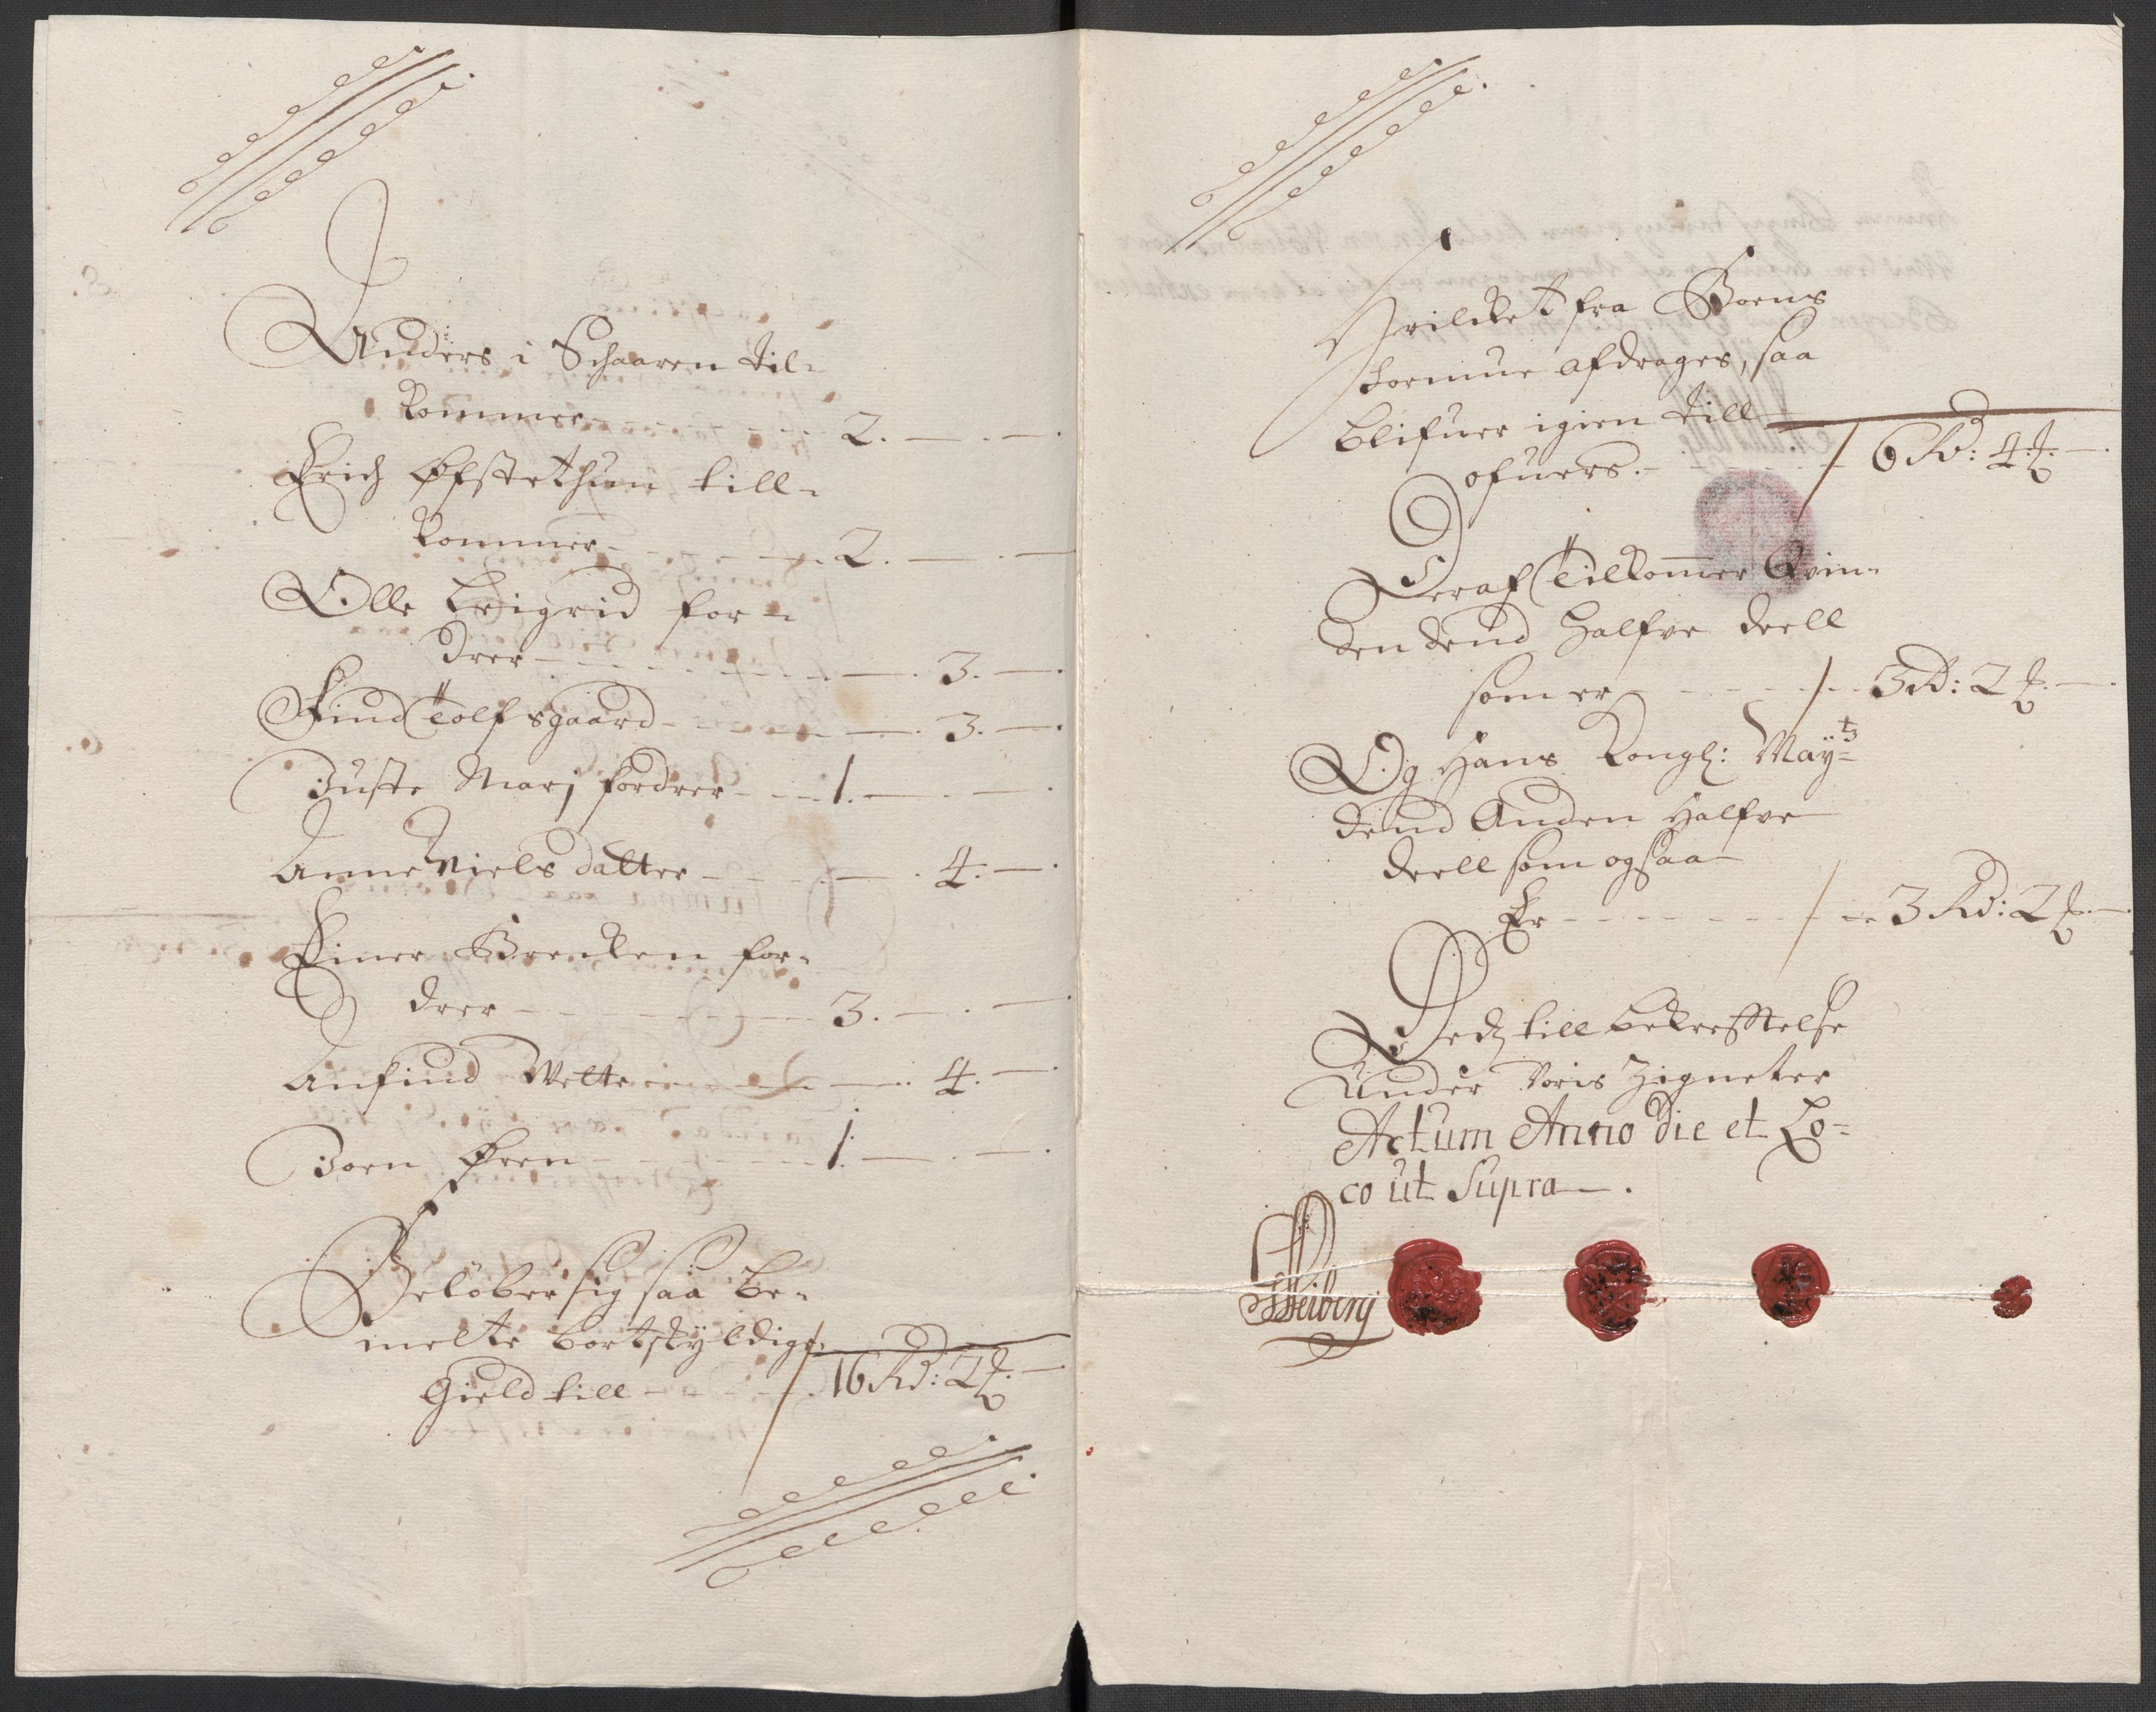 Anders i Schaaren til-
kommer - - - 2. — . —.
Erich Ofstethun till-
kommer - - - 2. — . —
Olle Leigrid for-
drer - - - . 3. —.
Find Tolfsgaard - - - . 3. —.
Juste Marj fordrer - - - 1. — . —.
Anne Niels datter - - - . 4. —.
Einer Brecken for-
drer - - - 3. — . —.
Anfind Melte - - - . 4. —.
Joen Øren - - - 1. — . —.
Beløber sig saa be-
melte bortskyldige
Gield till - - - 16 Rd: 2 —
Hvilcket fra Boens
formue afdrages, saa
blifuer igien till
ofuers. - - - 6 Rd: 4 —.
Deraf Tilkommer Qvin-
den dend halfve deell
som er - - - 3 Rd: 2 —.
Og Hans Kongl: Maÿts
dend Anden Halfve
deell som ogsaa
Er - - - 3 Rd: 2 —.
Dedz till bekrefftelse
Under Voris Zigneter
Actum Anno die et Lo-
co ut Supra — .
Heiberg